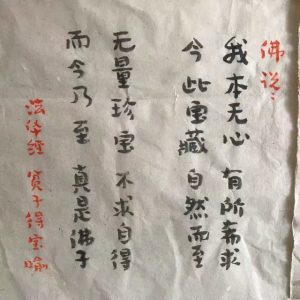 佛说：
我本无心 有所希求
今此宝藏 自然而至
无量珍宝 不求自得
而今乃至 真是佛子
法华经 贫子得宝喻